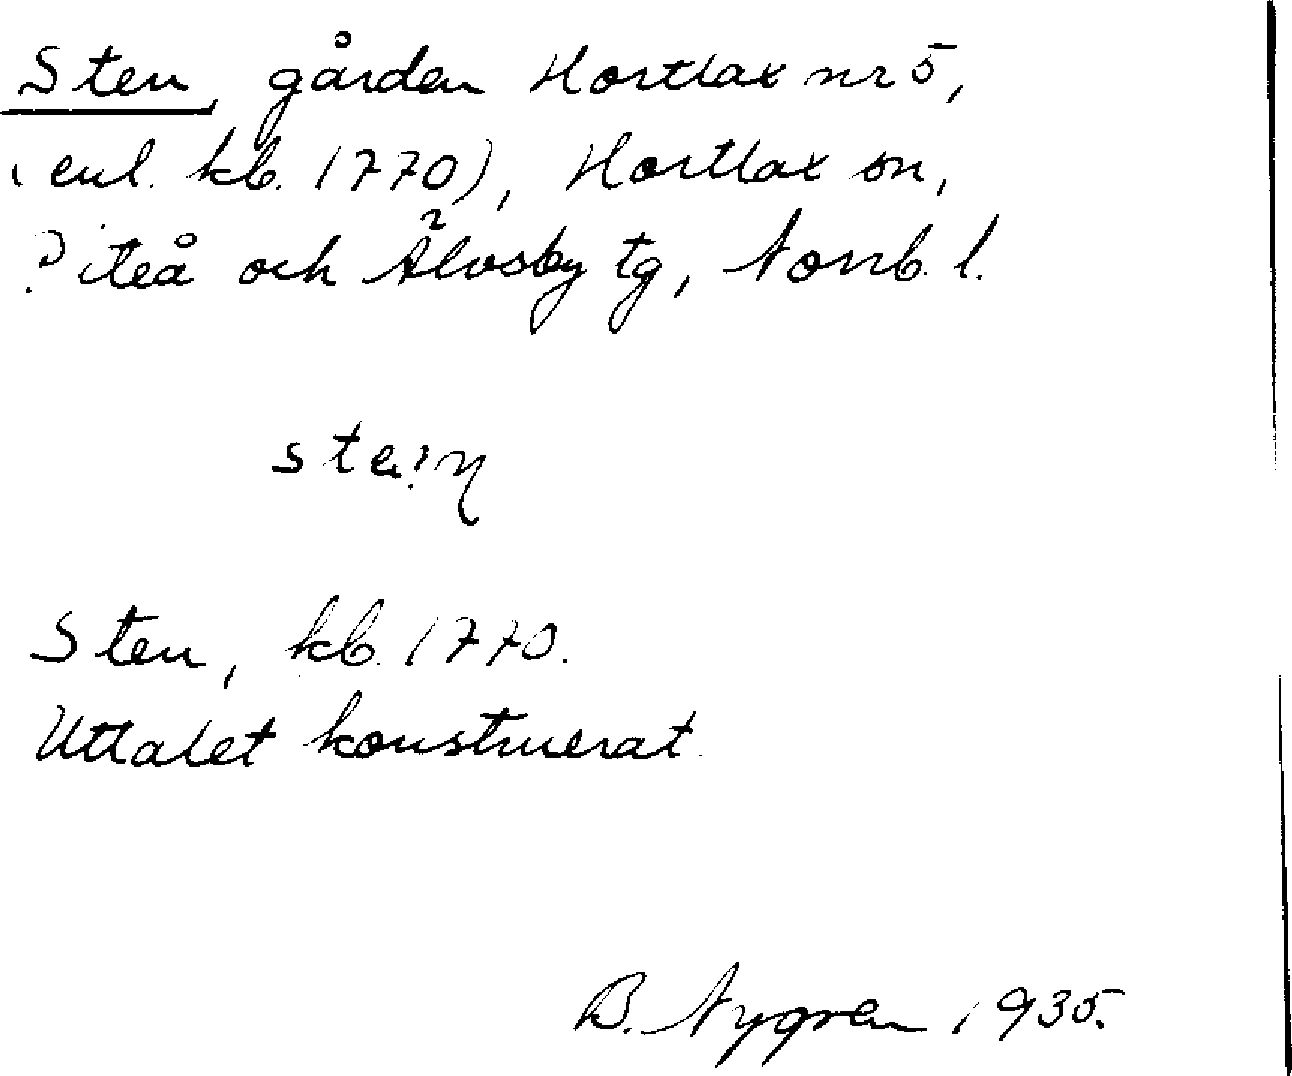 Sten, gården Hortlax nr 5,
(enl. kb. 1770), Hortlax sn,
Piteå och Älvsby tg, Norrb. l.
Sten, kb. 1770.
Uttalet konstruerat.
B. Nygren 1935.